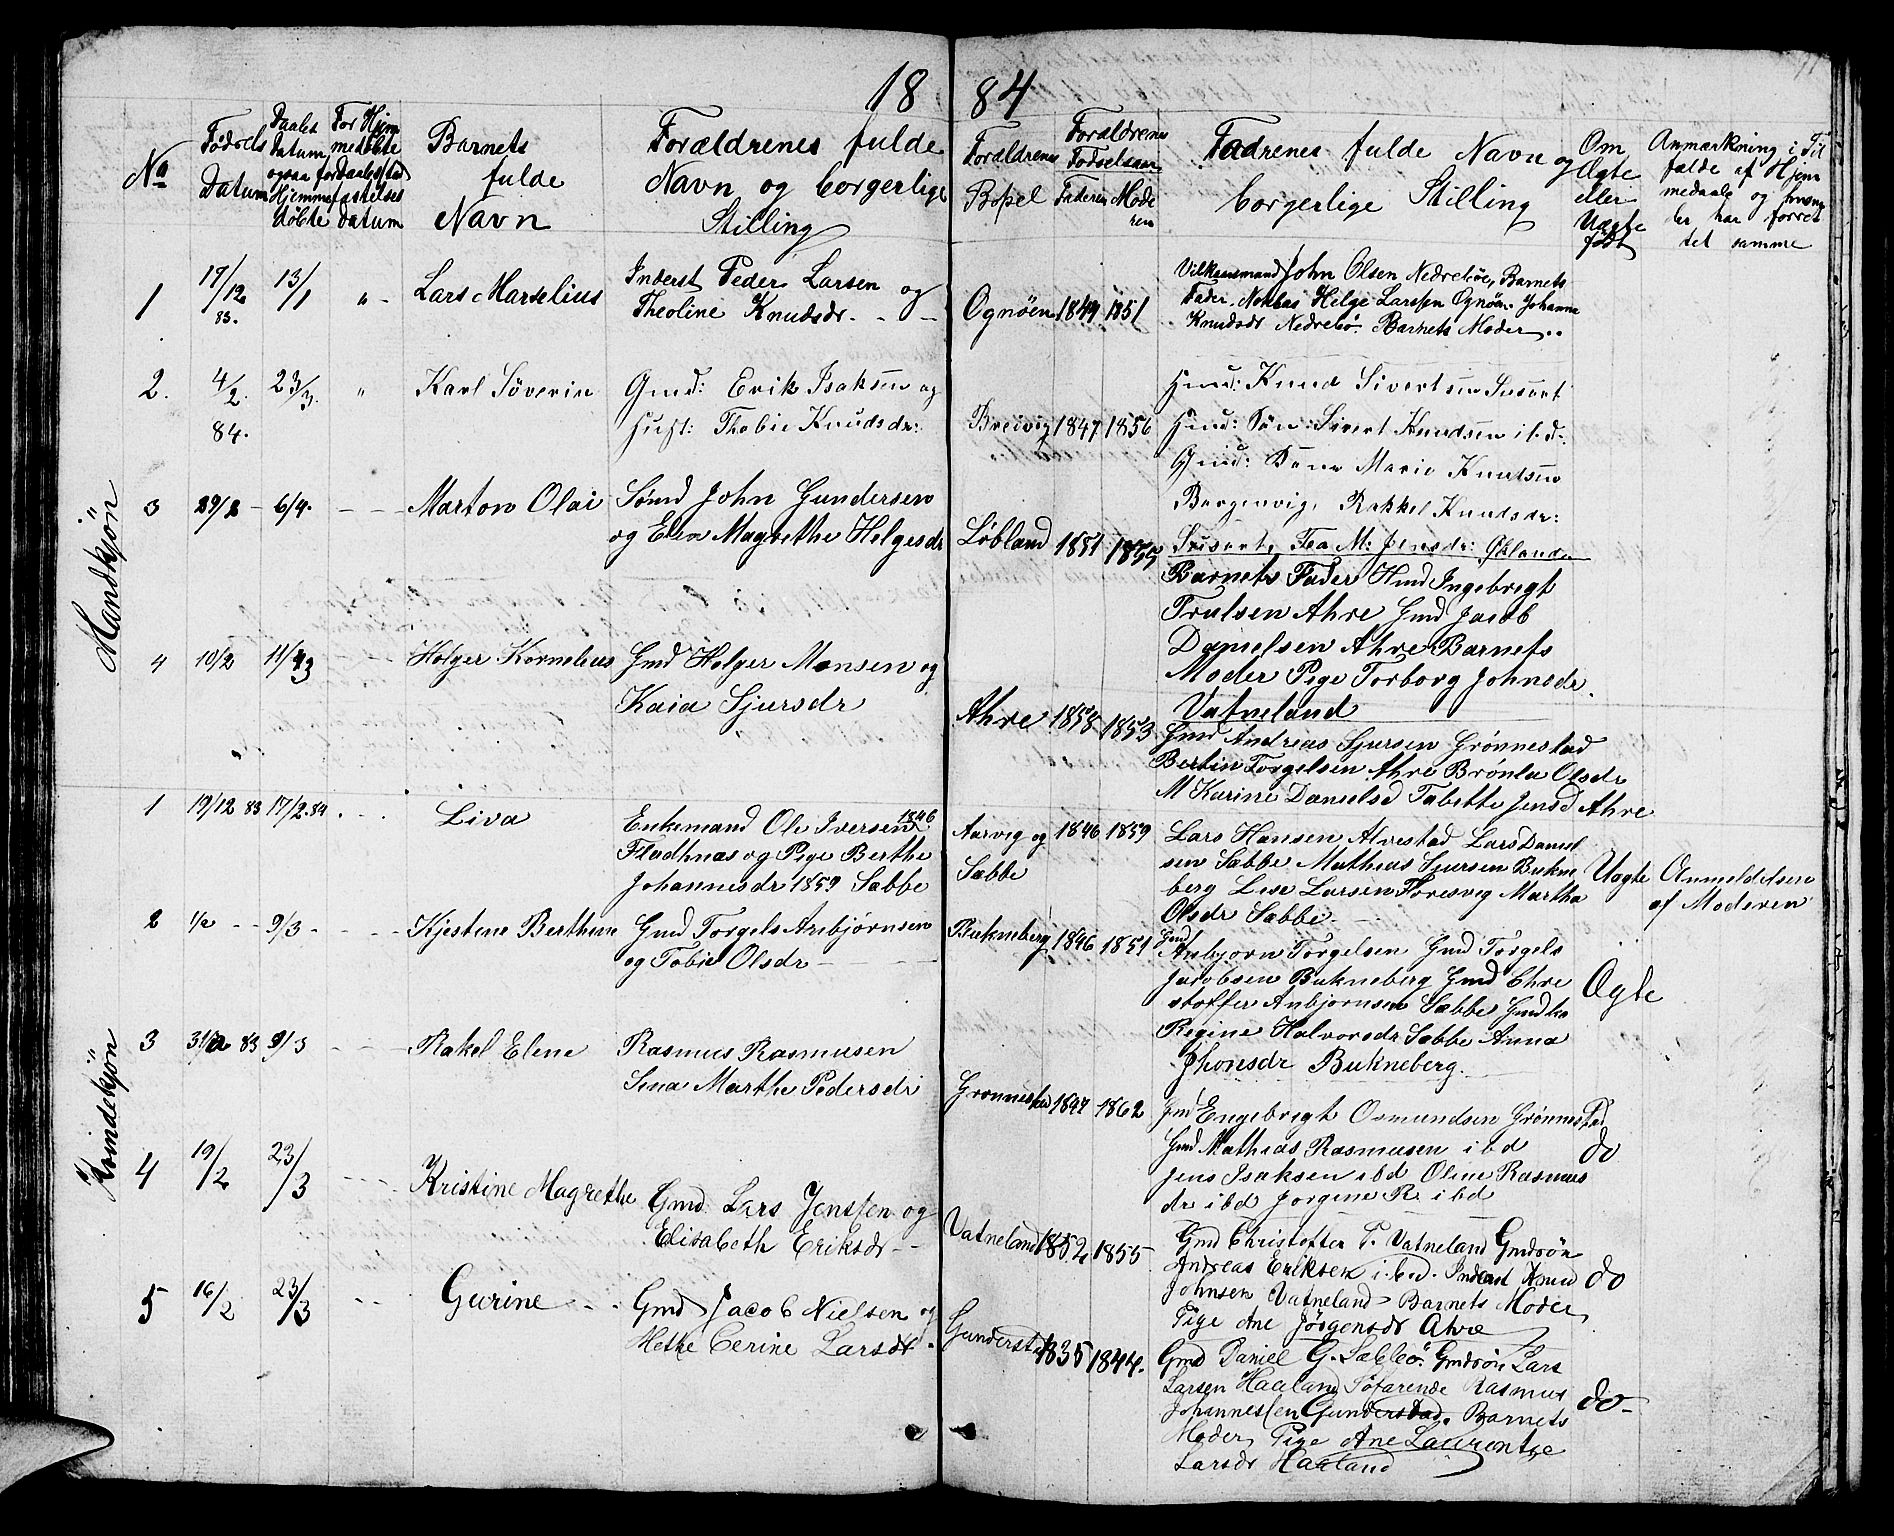 18 84
No
Fødsels
Datum
Daabs
Datum
ogsaa for
Hjemme
døbte
For Hjem
medøbte
Daabs Stad
fæstelses
datum
Barnets
fulde
Navn
Forældrenes fulde
Navn og borgerlige
Stilling
Forældrenes
Bopel
Forældrenes
Fødselsaar
Faderen Mode
ren
Fadrenes fulde Navn og
borgerlige Stilling
Om
Ægte
eller
Uægte
født
Anmærkning i Til
fælde af Hjem
medaab og hvem
der har forret
tet samme
Mandkjøn
1 17/12 83. 13/1 " - Lars Marselius
Inderst Peder Larsen og
Theoline Knudsdr. - -
Ognøen 1849 1851
Vilkaarsmand John Olsen Nedrebøe, Barnets
Fader, Helge Larssen Ognøen. Johanna
Knudsdr Nedrebø. Barnets Moder..
2. 4/2. 84. 23/3. " Karl Søverin
Gmd: Erik Isaksen og
Hust: Thobie Knudsdr:
Breivig 1847 1856
Hmd: Knud Sivertsen
Hmd: Søn: Sivert Knudsen ibd:
Maria Knudsen
Rakkel Knudsdr:
Tea M: Jensdr: Økland
3 29/2 - 6/4. - - - Marton Olai
Sømd John Gundersen
og Elen Magrethe Helgesdr
Løbland 1851 1855
Barnets Fader Hmd Ingebrigt
Trulsen Ahre Gmd Jacob
Danielsen Ahre Barnets
Moder Pige Torborg Johnsdr.
Vatneland
4 10/2 11/43 - - - Holger Kornelius
Gmd Holger Monsen og
Kaia Sjursdr
Ahre 1858 1853
Gmd Andreas Sjursen Grønnestad
Bertin Torgelsen Ahre Brønla Olsdr
M Karine Danielsd Tabette Jensd Ahre
Kvindekjøn
1 19/12 83 17/2.84 . - - Liva
Enkemand Ole Iversen 1846
Fladhnæs og Pige Berthe
Johannesdr 1859 Sæbbe
Aarvig og
Sæbbe
1846 1859
Lars Hansen Alvestad Lars Daniel
sen Sæbbe Mathias Sjursen Bukne
berg Lise Larsen Toresvig Martha
Olsdr Sæbbe.
Uægte
Anmeldelsen
af Moderen
2 1/2 - - 9/3 - - - Kjestene Berthine
Gmd Torgels Anbjørnsen
og Tobie Olsdr - - -
Bukneberg 1846 1851
Gmd
Anbjørn Torgelsen Gmd Torgels
Jacobsen Bukneberg Gmd Chre
stoffer Anbjørnsen Sæbbe Gmdko
Regine Halvorsdr Sæbbe Anna
Jhonsdr Bukneberg.
Ægte
3 31/12 83 9/3 - - - Rakel Elene
Rasmus Rasmusen
Sina Marthe Pedersdr
Grønnestad 1847 1862
Gmd Engebrigt Osmundsen Grønnestad
Gmd Mathias Rasmusen ibd
Jens Isaksen ibd Oline Rasmus
dr ibd Jorgine R. ibd
do
4 19/2 23/3 - - - Kristine Magrethe
Gmd. Lars Jenssen og
Elisabeth Eriksdr - -
Vatneland 1852 1855
Gmd Christoffer T. Vatneland Gmdsøn
Andreas Eriksen i.b.d. Inderst Knud
Johnsen Vatneland - Barnets Moder
Pige Ane Jørgensdr Ahre
do
5 16/2 23/3 - - Gurine - -
Gmd Jacob Nielsen og
Methe Cerine Larsdr.
Gunderstad 1835 1844.
Gmd Daniel G. Sæbbø. Gmdsøn Lars
Larsen Haaland Søfarende Rasmus
Johannessen Gunderstad. Barnets
Moder, Pige Ane Laurentze
Larsdr Haaland
do -